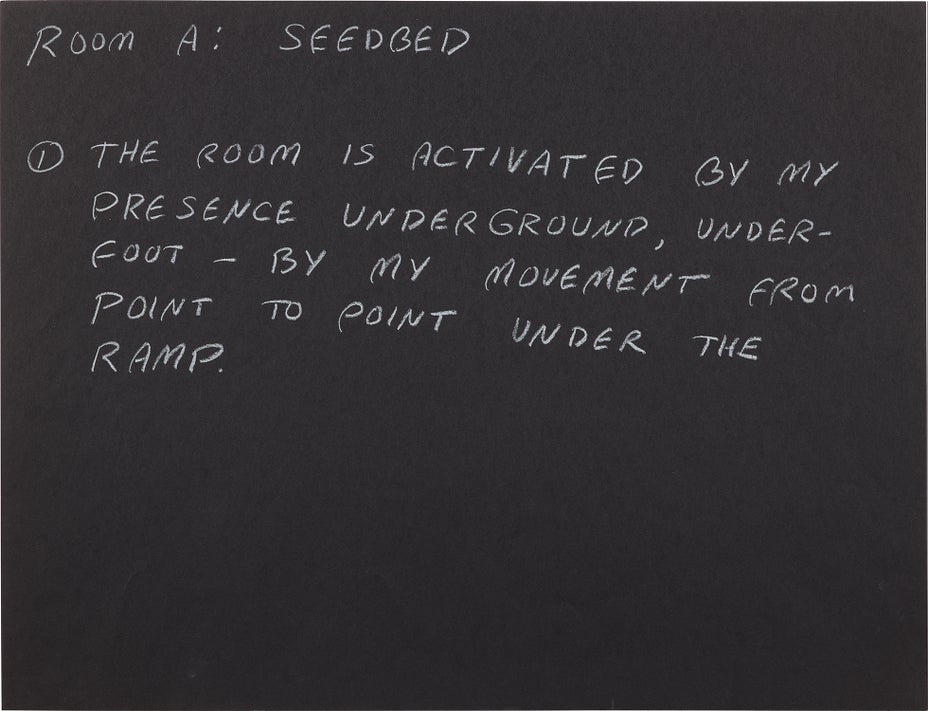 ROOM A: SEEDBED
① THE ROOM IS ACTIVATED BY MY
PRESENCE UNDERGROUND, UNDER-
FOOT – BY MY MOVEMENT FROM
POINT TO POINT UNDER THE
RAMP.